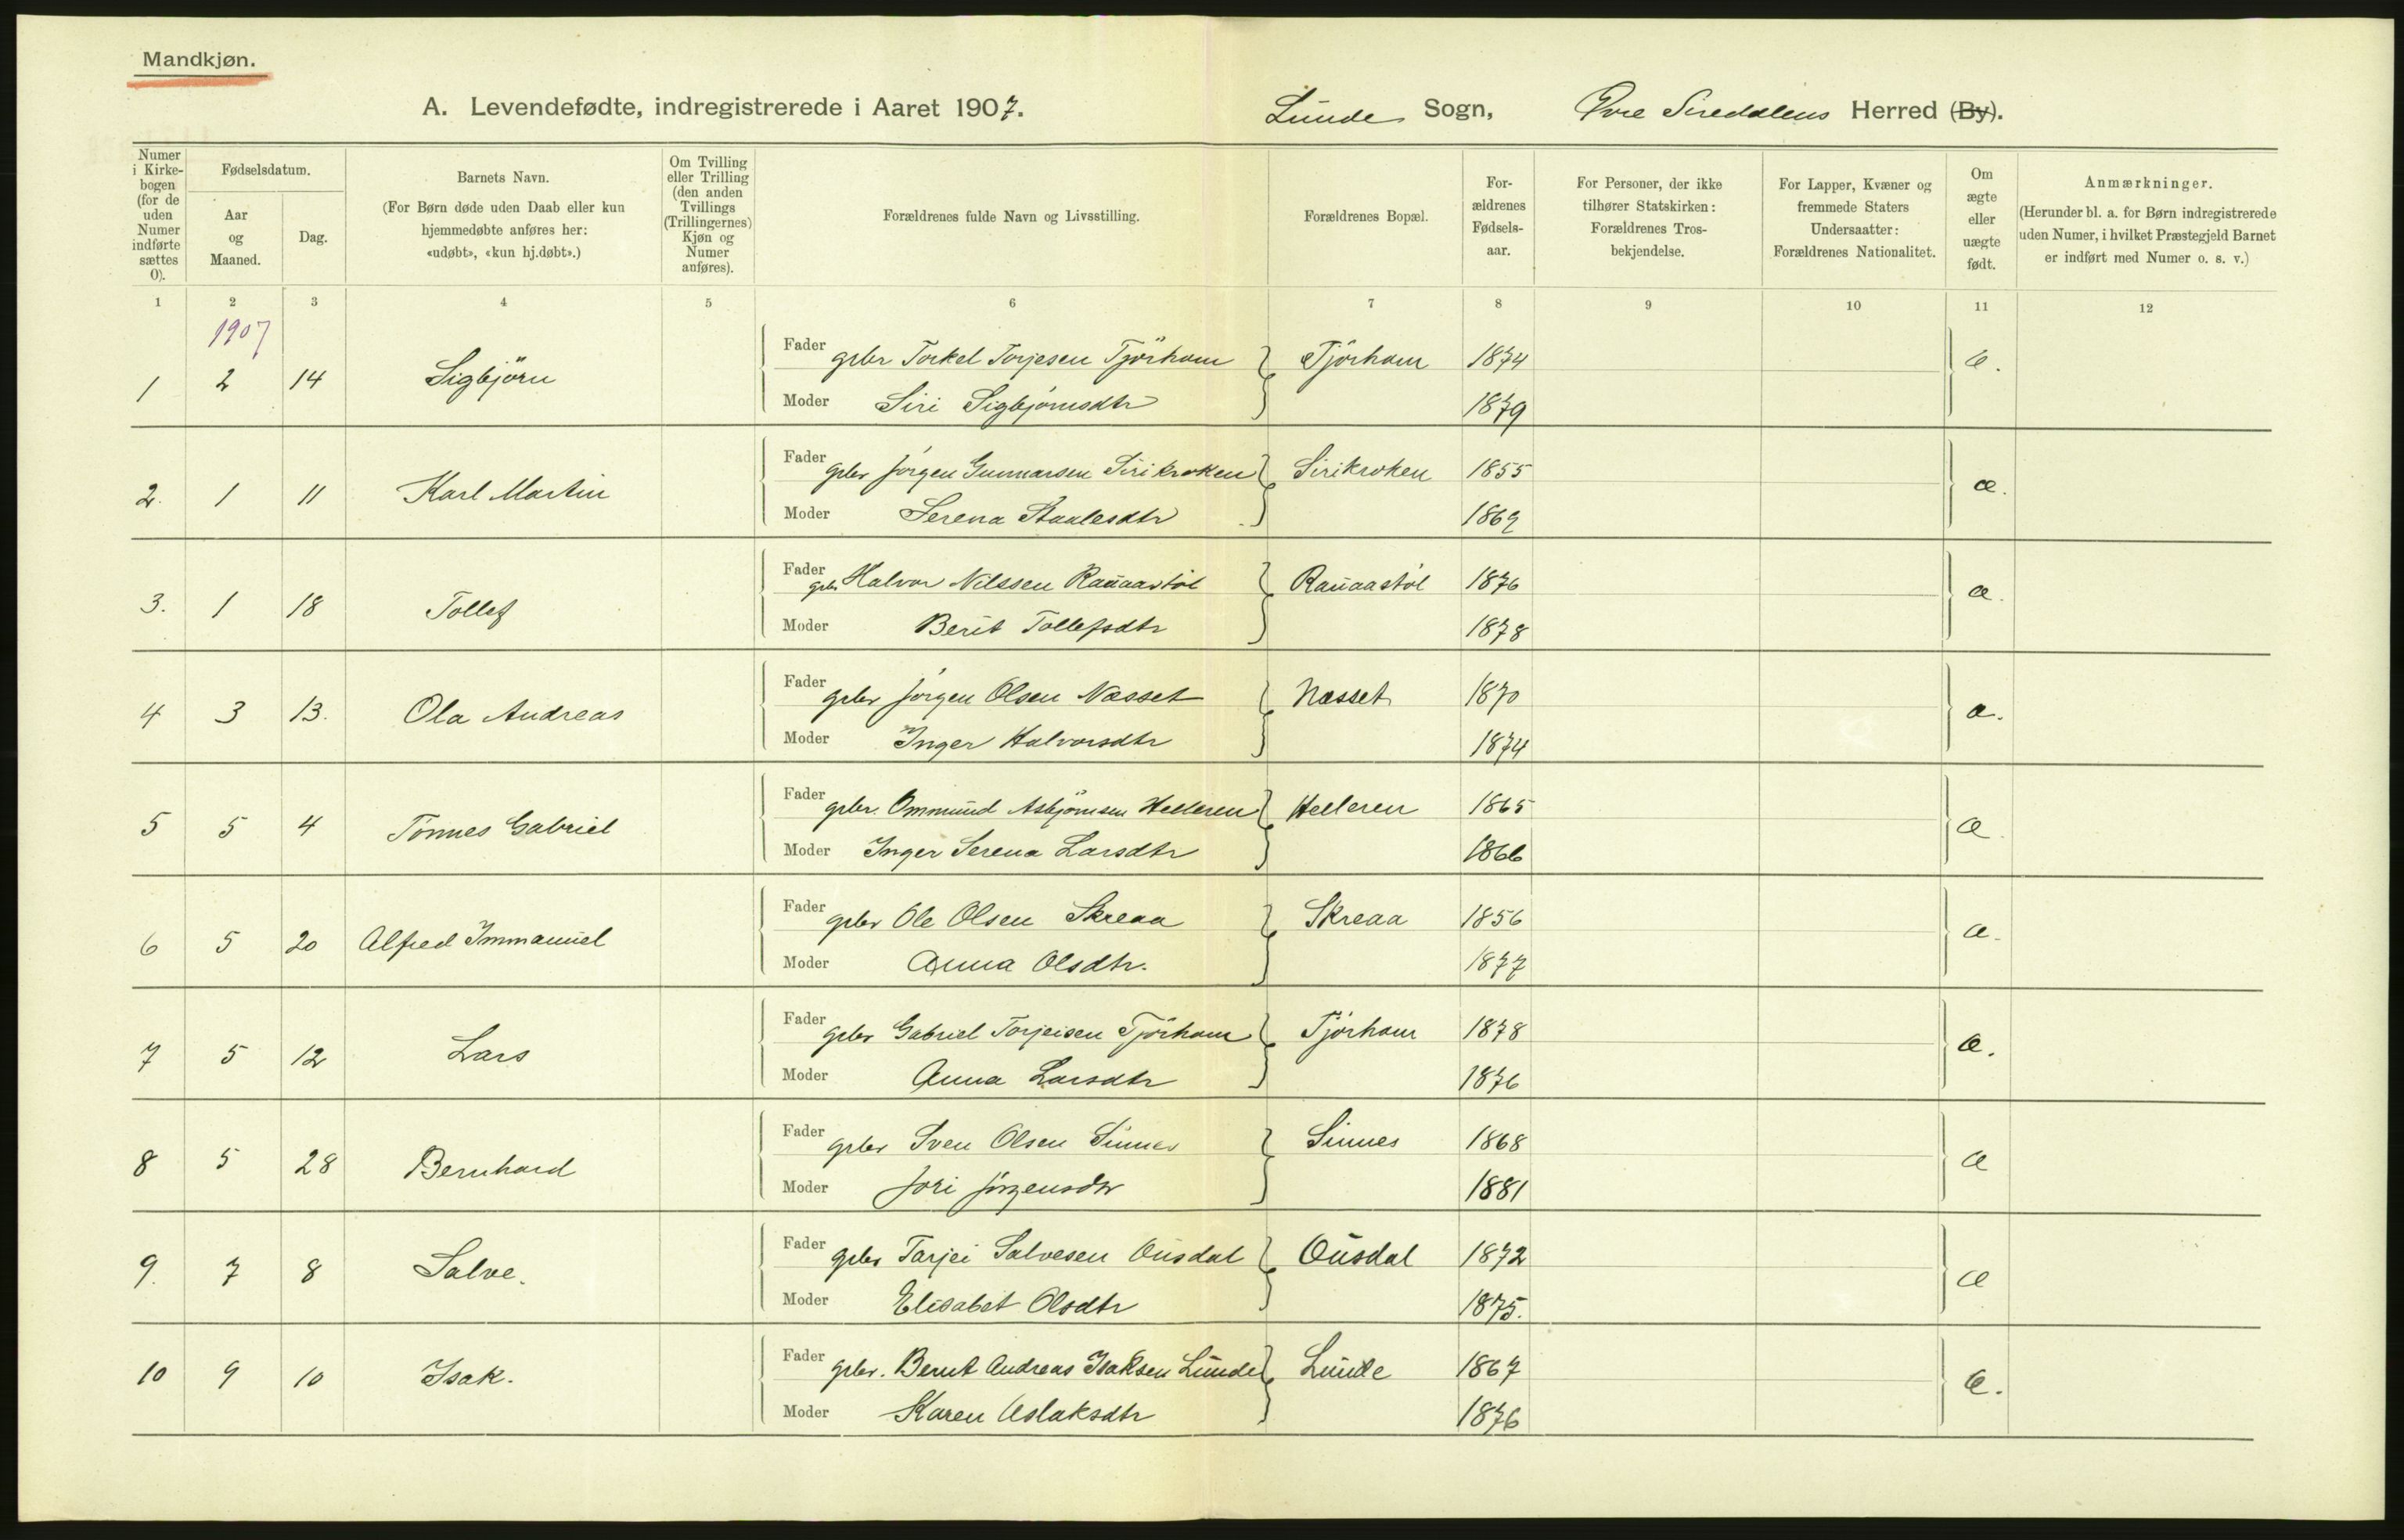 Mandkjøn.
A. Levendefødte, indregistrerede i Aaret 1907. Lunde Sogn, Øvre Siredalens Herred (By).
Numer i Kirkebogen (for de uden Numer indførte sættes 0).
Fødselsdatum.
Aar og Maaned.
Dag.
Barnets Navn.
(For Børn døde uden Daab eller kun hjemmedøbte anføres her: «udøbt», «kun hj.døbt».)
Om Tvilling eller Trilling (den anden Tvillings (Trillingernes) Kjøn og Numer anføres).
Forældrenes fulde Navn og Livsstilling.
Forældrenes Bopæl.
For-ældrenes Fødsels-aar.
For Personer, der ikke tilhører Statskirken: Forældrenes Tros-bekjendelse.
For Lapper, Kvæner og fremmede Staters Undersaatter: Forældrenes Nationalitet.
Om ægte eller uægte født.
Anmærkninger.
(Herunder bl. a. for Børn indregistrerede uden Numer, i hvilket Præstegjeld Barnet er indført med Numer o. s. v.)
1 2 3 4 5 6 7 8 9 10 11 12
1907
1 2 14 Sigbjörn Fader grbr Torkel Torjesen Tjörhom Tjörhom 1874 æ.
Moder Siri Sigbjörnsdtr 1879
2. 1 11 Karl Martin Fader grbr Jörgen Gunnarsen Sirikroken Sirikroken 1855 æ.
Moder Serena Staalesdtr 1869
3. 1 18 Tollef Fader grbr Halvor Nilssen Rauaastöl Rauaastöl 1876 æ.
Moder Berit Tollefsdtr 1878
4 3 13. Ola Andreas Fader grbr Jörgen Olsen Næsset Næsset 1870 æ.
Moder Inger Halvorsdtr 1874
5 5 4 Tönnes Gabriel Fader grbr. Ommund Asbjörnsen Helleren Helleren 1865 æ
Moder Inger Serena Larsdtr 1866
6 5 20 Alfred Immanuel Fader grbr Ole Olsen Skreaa Skreaa 1856 æ.
Moder Anna Olsdtr. 1877
7 5 12 Lars Fader grbr Gabriel Torjeisen Tjörhom Tjörhom 1878 æ.
Moder Anna Larsdtr 1876
8 5 28 Bernhard Fader grbr Sven Olsen Sinnes Sinnes 1868 æ
Moder Jori Jörgensdtr 1881
9. 7 8 Salve. Fader grbr Tarjei Salvesen Ousdal Ousdal 1872 æ
Moder Elisabet Olsdtr 1875.
10 9 10 Isak. Fader grbr. Bernt Andreas Isaksen Lunde Lunde 1867 æ.
Moder Karen Aslaksdtr 1876